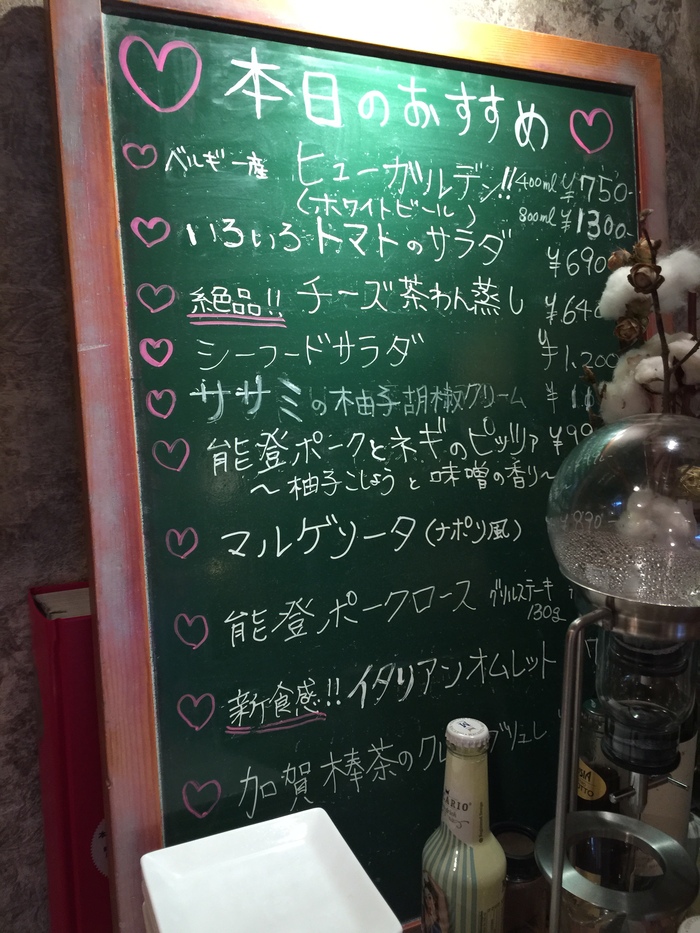 本日のおすすめ
ベルギー産 ヒューガルデン!! 400ml ¥750-
(ホワイトビール) 800ml ¥1300-
いろいろトマトのサラダ ¥690
絶品!! チーズ茶わん蒸し ¥640
シーフードサラダ ¥1,200
ササミの柚子胡椒クリーム ¥
能登ポークとネギのピッツァ
～柚子こしょうと味噌の香り～
マルゲリータ(ナポリ風)
能登ポークロース グリルステーキ
130g
新食感!! イタリアンオムレット
加賀棒茶のクレームブリュレ